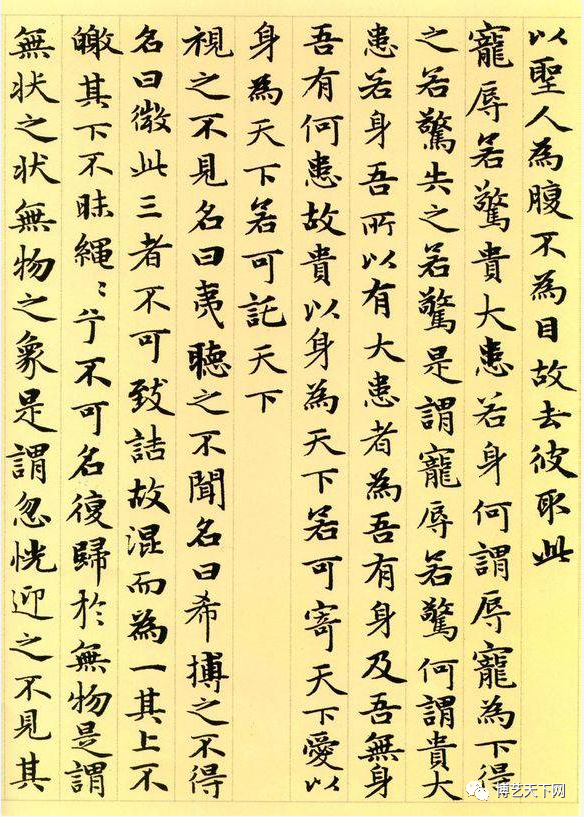 以聖人為腹不為目故去彼取此
寵辱若驚貴大患若身何謂辱寵為下得
之若驚失之若驚是謂寵辱若驚何謂貴大
患若身吾所以有大患者為吾有身及吾無身
吾有何患故貴以身為天下若可寄天下愛以
身為天下若可託天下
視之不見名曰夷聽之不聞名曰希搏之不得
名曰微此三者不可致詰故混而為一其上不
皦其下不昧繩〻兮不可名復歸於無物是謂
無状之状無物之象是謂忽恍迎之不見其
博艺天下网